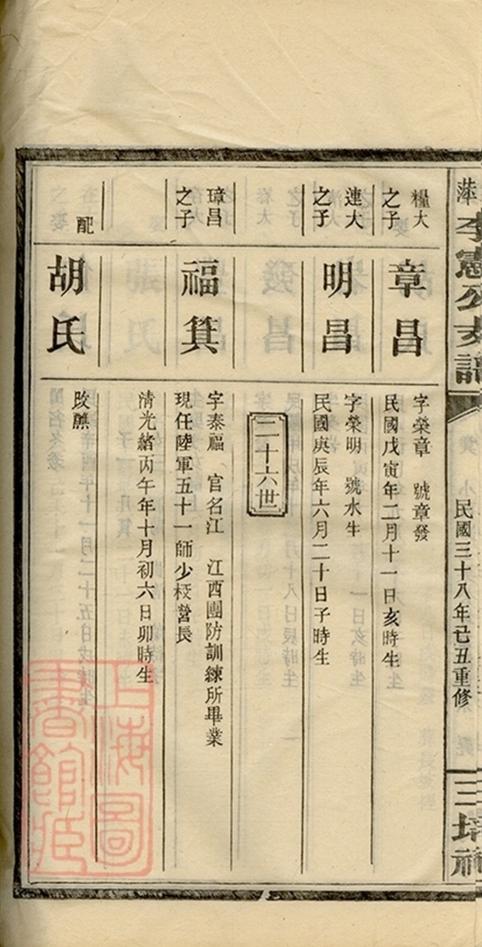 李憲公支譜
民國三十八年己丑重修
三培祠
糧大
之子
章昌
字榮章 號章發
民國戊寅年二月十一日亥時生
連大
之子
明昌
字榮明 號水生
民國庚辰年六月二十日子時生
二十六世
璋昌
之子
福箕
字泰福 官名江 江西團防訓練所畢業
現任陸軍五十一師少校營長
清光緒丙午年十月初六日卯時生
配
胡氏
改醮
上海圖
書館藏